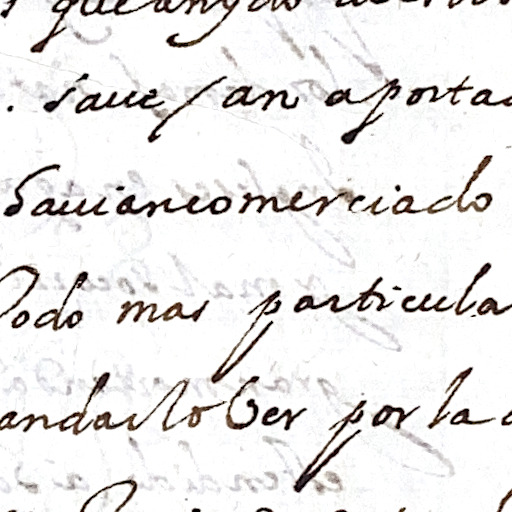 saue / an aporta
hauian comerciado
Todo mas particula
andarlo ber por la